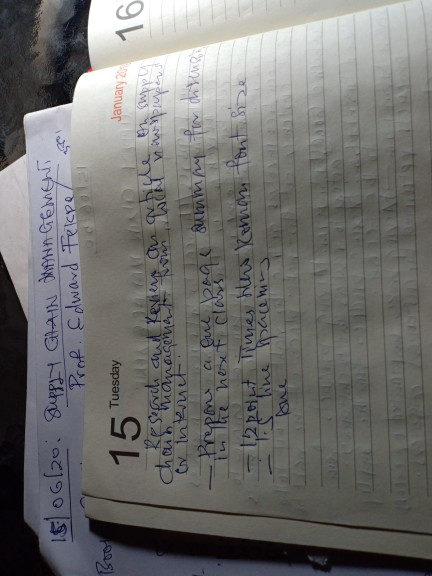 16
January 20
15 Tuesday
Research and Review an article on supply
chain management from local newspapers
or Internet
— Prepare a one page summary for discussion
in the next class.
— 12 point Times New Roman font size
— 1.5 line spacing
06/20: SUPPLY CHAIN MANAGEMENT
Prof. Edward
Boo